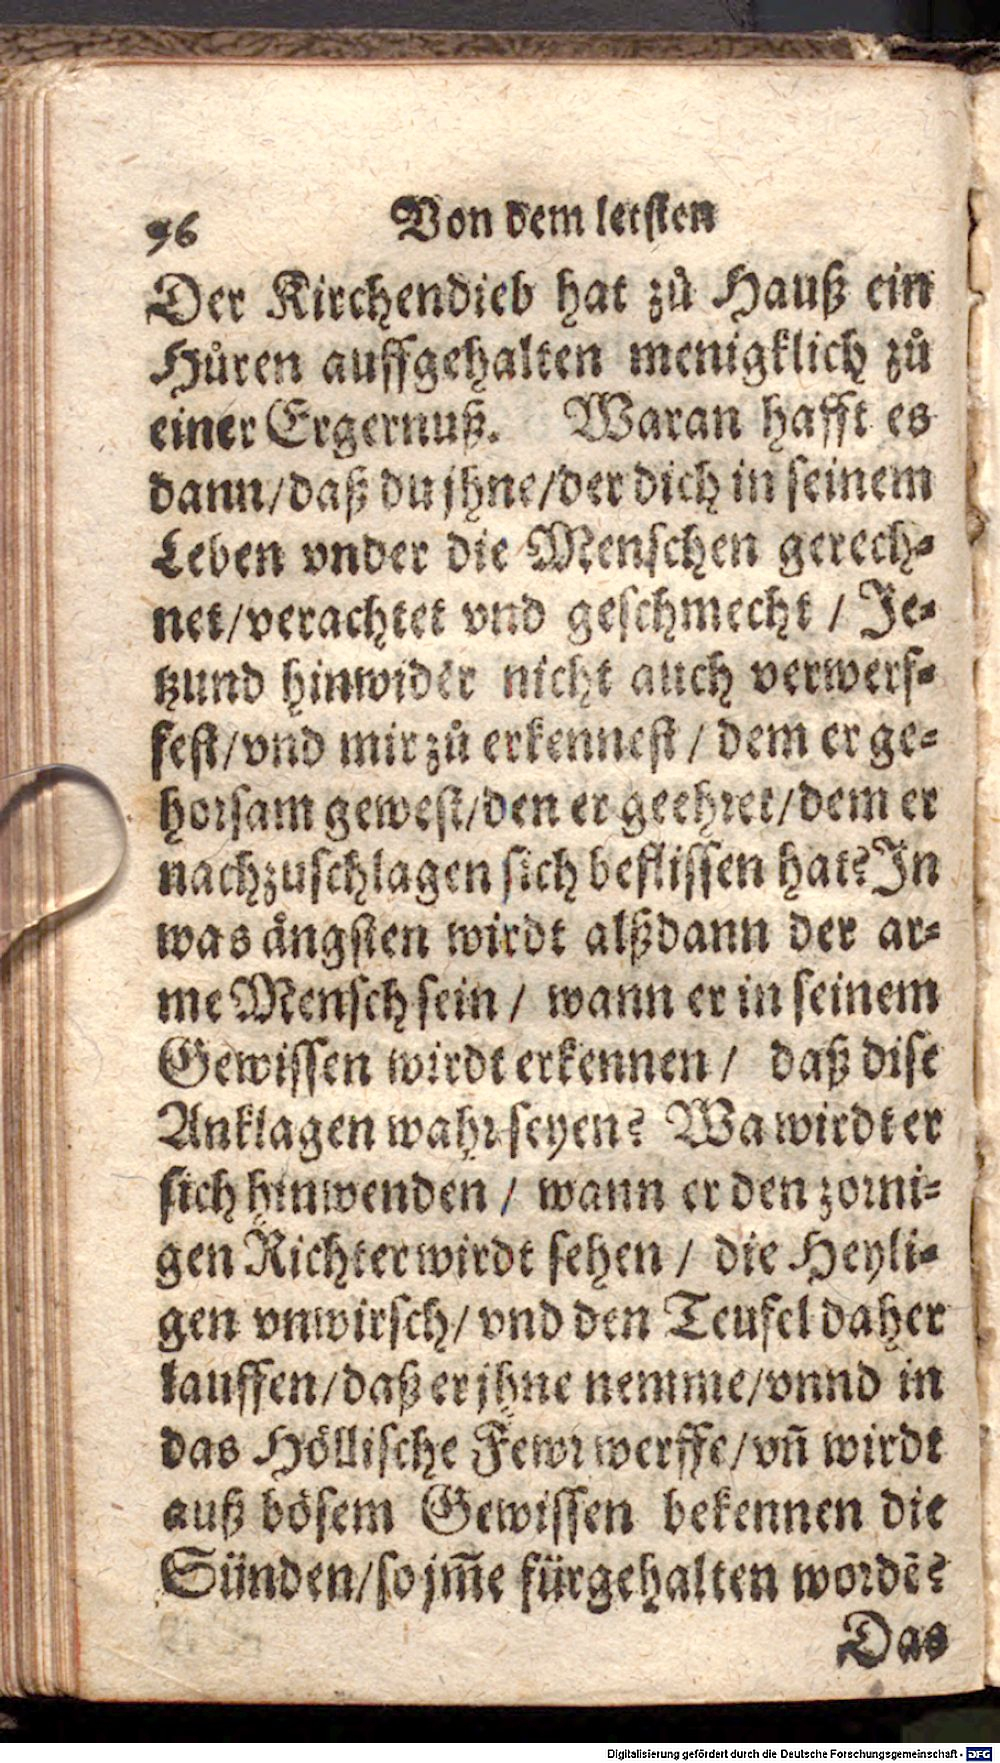 96 Von dem letsten
Der Kirchendieb hat zů Hauß ein
Hůren auffgehalten menigklich zů
einer Ergernuß. Waran hafft es
dann/daß du jhne/der dich in seinem
Leben vnder die Menschen gerech⸗
net/verachtet vnd geschmecht / Je⸗
tzund hinwider nicht auch verwerf⸗
fest/vnd mir zů erkennest / dem er ge⸗
horsam gewest/den er geehret/dem er
nachzuschlagen sich beflissen hat? In
was ängsten wirdt alßdann der ar⸗
me Mensch sein / wann er in seinem
Gewissen wirdt erkennen / daß dise
Anklagen wahr seyen? Wa wirdt er
sich hinwenden / wann er den zorni⸗
gen Richter wirdt sehen / die Heyli⸗
gen vnwirsch/ vnd den Teufel daher
lauffen/daß er jhne nemme/vnnd in
das Höllische Fewr werffe/vñ wirdt
auß bösem Gewissen bekennen die
Sünden/so jm̃e fürgehalten wordẽ?
Das
Digitalisierung gefördert durch die Deutsche Forschungsgemeinschaft - DFG